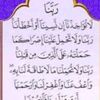 رَبَّنَا
لَا تُؤَاخِذْنَا إِن نَّسِينَا أَوْ أَخْطَأْنَا
رَبَّنَا وَلَا تَحْمِلْ عَلَيْنَا إِصْرًا كَمَا
حَمَلْتَهُ عَلَى الَّذِينَ مِن قَبْلِنَا
رَبَّنَا وَلَا تُحَمِّلْنَا مَا لَا طَاقَةَ لَنَا بِهِ
وَاعْفُ عَنَّا وَاغْفِرْ لَنَا وَارْحَمْنَا